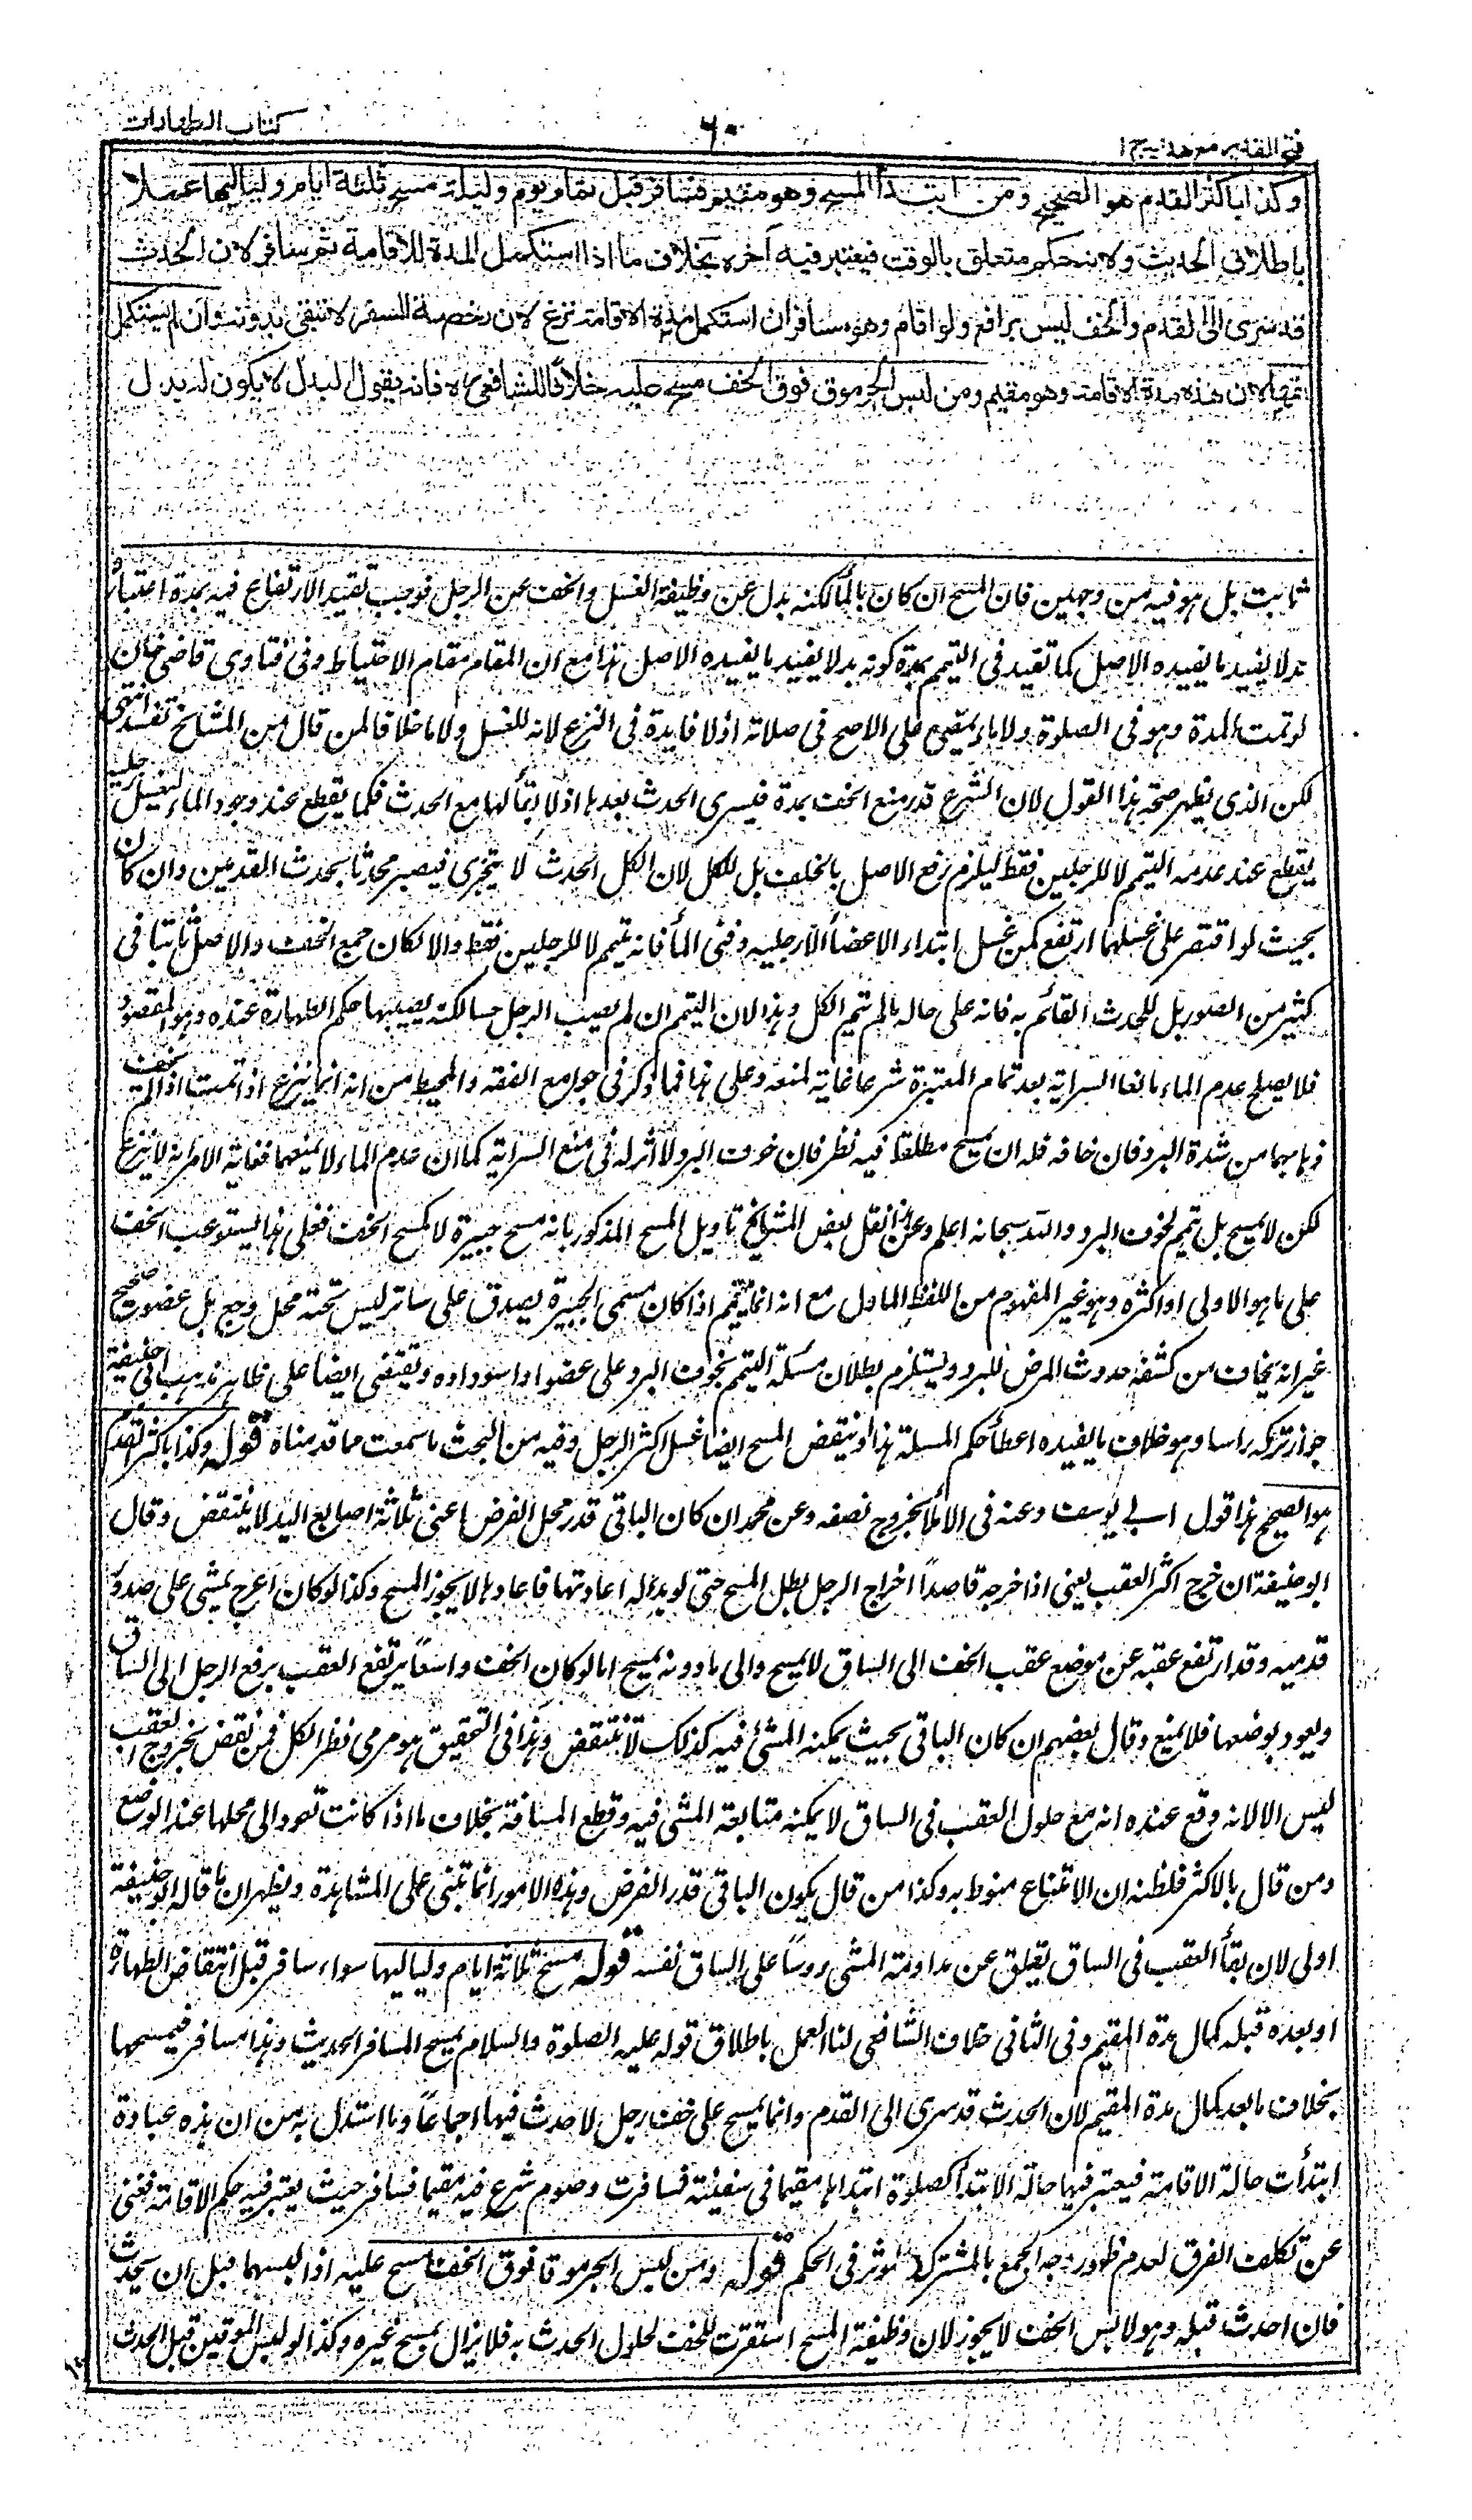 فتح القدير مع هدايه ج ١
٦٠
كتاب الطهارات
وكذا باكثر القدم هو الصحيح ومن ابتدأ المسح وهو مقيم فسافر قبل تمام يوم وليلة مسح ثلثة ايام ولياليها عملا
باطلاق الحديث ولانه حكم متعلق بالوقت فيعتبر فيه آخره بخلاف ما اذا استكمل المدة للاقامة ثم سافر لان الحدث
قد سرى الى القدم والخف ليس برافع ولو اقام وهو مسافر ان استكمل مدة الاقامة نزع لان رخصة السفر لا تبقى بدونه وان لم يستكمل
اتمها لان هذه مدة الاقامة وهو مقيم ومن لبس الجرموق فوق الخف مسح عليه خلافا للشافعي رح فانه يقول البدل لا يكون له بدل
ثابت بل هو فيه من وجهين فان المسح ان كان بالماء لكنه بدل عن وظيفة الغسل والخف عن الرجل فوجب تقيد الارتفاع فيه بمدة اعتباره
بدلا يفيد ما يفيده الاصل كما تقيد فى التيمم بمدة كونه بدلا يفيد ما يفيده الاصل هذا مع ان المقام مقام الاحتياط وفى فتاوى قاضى خان
لو تمت المدة وهو فى الصلوة ولا ماء يمضى على الاصح فى صلاته اذ لا فايدة فى النزع لانه للغسل ولا ماء خلافا لمن قال من المشائخ تفسد انتهى
لكن الذى يظهر صحة هذا القول لان الشرع قدر منع الخف بمدة فيسرى الحدث بعدها اذ لا بقاء لها مع الحدث فكما يقطع عند وجود الماء ليغسل رجليه
يقطع عند عدمه لتيمم لا للرجلين فقط ليلزم رفع الاصل بالخلف بل للكل لان الكل الحدث لا يتجزى فيصير محدثا بحدث القدمين وان كان
بحيث لو اقتصر على غسلهما ارتفع كمن غسل ابتداء الاعضاء الا رجليه وفنى الماء فانه تيمم لا للرجلين فقط والا لكان جمع الخلف والاصل ثابتا فى
كثير من الصور بل للحدث القائم به فانه على حاله ما لم تتم الكل وهذا لان التيمم ان لم يصب الرجل حسا لكنه يصيبها حكم الطهارة عنده وهو المقصود
فلا يصلح عدم الماء مانعا السراية بعد تمام المعتبرة شرعا غاية لمنعه وعلى هذا فما ذكر فى جوامع الفقه والمحيط من انه انما ينزع اذا تمت اذا لم يخف
ذهابهما من شدة البرد فان خافه فله ان يمسح مطلقا فيه نظر فان خوف البرد لا اثر له فى منع السراية كما ان عدم الماء لا يمنعها فغاية الامر انه لا ينزع
لكن لا يمسح بل يتيمم لخوف البرد والله سبحانه اعلم وعن هذا نقل بعض المشائخ تاويل المسح المذكور بانه مسح جبيرة لا كمسح الخف فعلى هذا يستوعب الخف
على ما هو الاولى او اكثره وهو غير المفهوم من اللفظ الماول مع انه انما يتم اذا كان مسمى الجبيرة يصدق على ساتر ليس تحته محل وجع بل عضو صحيح
غير انه يخاف من كشفه حدوث المرض للبرد ويستلزم بطلان مسئلة التيمم بخوف البرد على عضو او اسوداده ويقتضى ايضا على ظاهر مذهب ابى حنيفة
جواز تركه راسا وهو خلاف ما يفيده اعطاء حكم المسئلة هذا وينتقض المسح ايضا غسل اكثر الرجل وفيه من البحث ما سمعت مما قدمناه قوله وكذا باكثر القدم
هو الصحيح هذا قول ابي يوسف وعنه فى الاملاء بخروج نصفه وعن محمد ان كان الباقى قدر محل الفرض اعنى ثلاثة اصابع اليد لا ينتقض وقال
ابو حنيفة ان خرج اكثر العقب يعنى اذا خرجه قاصداً اخراج الرجل بطل المسح حتى لو بدا له اعادتها فاعادها لا يجوز المسح وكذا لو كان اعرج يمشى على صدور
قدميه وقد ارتفع عقبه عن موضع عقب الخف الى الساق لا يمسح والى ما دونه يمسح اما لو كان الخف واسعاً يرتفع العقب برفع الرجل الى الساق
ويعود بوضعها فلا يمنع وقال بعضهم ان كان الباقى بحيث يمكنه المشى فيه كذلك لا ينتقض وهذا فى التحقيق هو مرمى نظر الكل فمن نقض بخروج العقب
ليس الا لانه وقع عنده انه مع حلول العقب فى الساق لا يمكنه متابعة المشى فيه وقطع المسافة بخلاف ما اذا كانت تعود الى محلها عند الوضع
ومن قال بالاكثر فلظنه ان الامتناع منوط به وكذا من قال بكون الباقى قدر الفرض وهذه الامور انما تبنى على المشاهدة ويظهر ان ما قاله ابو حنيفة
اولى لان بقاء العقب فى الساق يعلق عن مداومة المشى دوسا على الساق نفسه قوله مسح ثلاثة ايام ولياليها سواء سافر قبل انتقاض الطهارة
او بعده قبله كمال مدة المقيم وفى الثانى خلاف الشافعى لنا العمل باطلاق قوله عليه الصلوة والسلام يمسح المسافر الحديث وهذا مسافر فيمسحها
بخلاف ما بعد كمال مدة المقيم لان الحدث قد سرى الى القدم وانما يمسح على خف رجل لا حدث فيها اجماعاً وما استدل به من ان هذه عبادة
ابتدأت حالة الاقامة فيعتبر فيها حالة الابتداء كصلوة ابتداها مقيما فى سفينة فسافرت وصوم شرع فيه مقيما فسافر حيث يعتبر فيه حكم الاقامة فغنى
عن تكلف الفرق لعدم ظهور وجه الجمع بالمشترك المؤثر فى الحكم قوله ومن لبس الجرموق فوق الخف مسح عليه اذا لبسهما قبل ان يحدث
فان احدث قبله وهو لابس الخف لا يجوز لان وظيفة المسح استقرت للخف لحلول الحدث به فلا يزال بمسح غيره وكذا لو لبس الموقين قبل الحدث